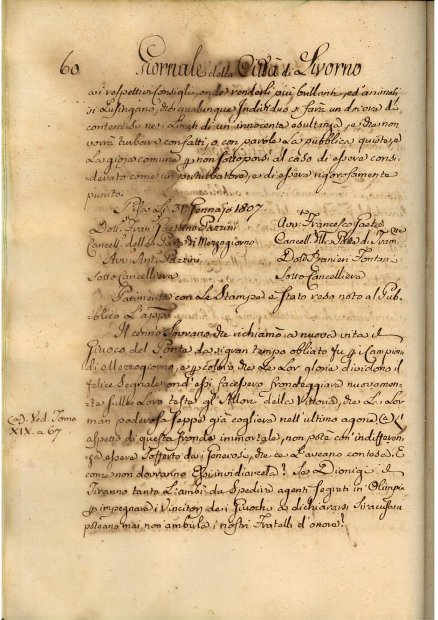 60 Giornale della Città di Livorno
ai rispettivi consigli, onde renderli più brillanti, ed animati
si lusingano, che qualunque Individuo si farà un dovere di
contenersi ne i limiti di un' innocente esultanza, e che non
vorrà turbare con fatti, o con parole la pubblica quiete, e
la gioja comune p non sottoporsi al caso di essere consi-
derato come un perturbatore, e di essere rigorosamente
punito.
Pisa Li 31 Gennajo 1807
Dott. Fran. Gaetano Pazzini
Avv. Francesco Gaeta
Cancell. della Parte di Mezzogiorno
Cancell. della Parte di Tram
Avv. Ant. Pazzini
Dott. Ranieri Fontani
Sotto Cancelliere
Sotto Cancelliere
Parimente con le Stampe è stato reso noto al Pub-
blico l'app
Il cenno Sovrano che richiamò a nuova vita il
Giuoco del Ponte da sì gran tempo obliato fu p i Campioni
di Mezzogiorno, e p coloro che le lor glorie dividono il
felice segnale ond' essi facessero frondeggiare nuovamente
sulle loro teste gli Allori della Vittoria, che la lor
man poderosa seppe già cogliere nell' ultimo agone (a) L'
aspetto di questa fronda immortale, non potè con indifferen-
za essere sofferto da i generosi, che ce l'aveano contesa. E
come non dovranno essi invidiarcela? Se Dionigi il
Tiranno tanto l'ambì da spedire agenti segreti in Olimpia
p impegnare i Vincitori de i Giuochi a dichiararsi Siracusani
poteano mai non ambirla i nostri Fratelli d'onore!
(a) Ved. Tomo
XIX. a 67